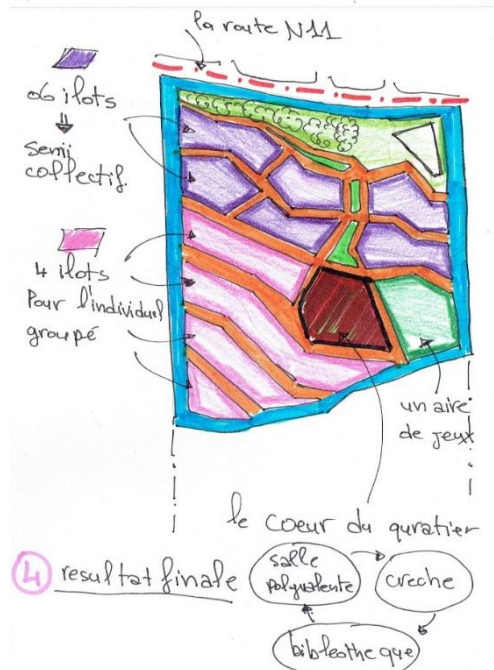 la route N11
06 ilots
semi
collectif.
4 ilots
Pour l'individuel
groupé
un aire
de jeux
le coeur du quratier
4 resultat finale
salle
polyvalente
creche
bibleotheque